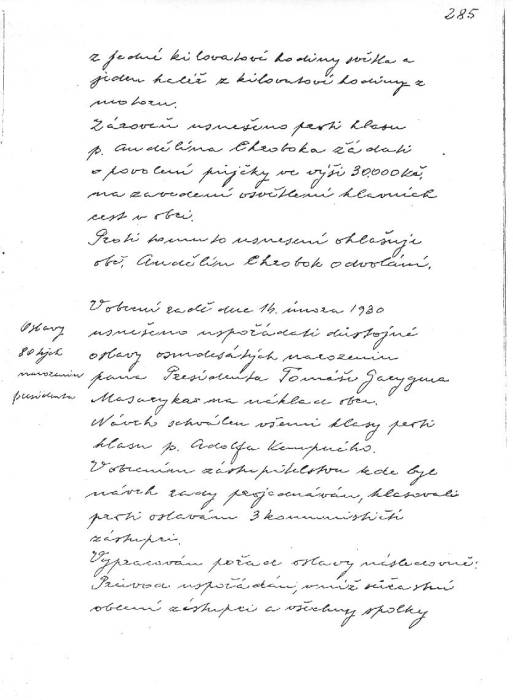 285
z jedné kilovatové hodiny světla a
jeden haléř z kilovatové hodiny z
motoru.
Zároveň usneseno proti hlasu
p. Andělína Chroboka žádati
o povolení půjčky ve výši 30.000 Kč.
na zavedení osvětlení hlavních
cest v obci.
Proti tomuto usnesení ohlašuje
obč. Andělín Chrobok odvolání.
V obecní radě dne 14. února 1930
usneseno uspořádati důstojné
oslavy osmdesátých narozenin
pana Presidenta Tomáše Garygua
Masaryka na náklad obce.
Oslavy
80 tých
narozenin
presidenta
Návrh schválen všemi hlasy proti
hlasu p. Adolfa Kempného.
V obecním zastupitelstvu kde byl
návrh rady projednáván, hlasovali
proti oslavám 3 komunističtí
zástupci.
Vypracován pořad oslavy následovně:
Průvod uspořádán, v níž účastní
obecní zástupci a všechny spolky